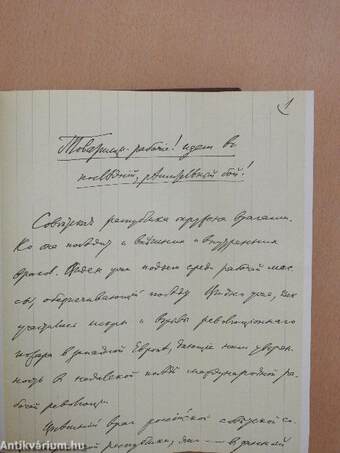 1
Товарищи-рабочіе! Идем в
послѣдній, рѣшительный бой!
Совѣтская республика окружена врагами.
Но она побѣдит и внѣшних и внутренних
врагов. Виден уже подъем среди рабочей мас-
сы, обеспечивающий побѣду. Видно уже, как
участились искры и взрывы революционного
пожара в западной Европѣ, дающие нам уверен-
ность в недалекой побѣдѣ международной ра-
бочей революции.
Внѣшний враг российской совѣтской со-
республики, это — в данный
Antikvárium.hu